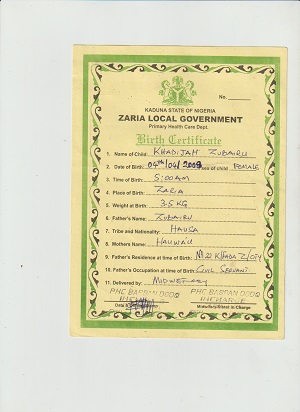 KADUNA STATE OF NIGERIA
ZARIA LOCAL GOVERNMENT
Primary Health Care Dept.
No.
Birth Certificate
1. Name of Child: KHADIJAH ZUBAIRU
2. Date of Birth: 04th/04/2009 sex of child FEMALE
3. Time of Birth: 5:00AM
4. Place of Birth: ZARIA
5. Weight at Birth: 3.5KG
6. Father's Name: ZUBAIRU
7. Tribe and Nationality: HAUSA
8. Mothers Name: HAUWAU
9. Father's Residence at time of Birth: Z/CITY
10. Father's Occupation at time of Birth: CIVIL SERVANT
11. Delivered by: MIDWIFERY
PHC BABBAN DODO PHC BABBAN DODO
INCHARGE INCHARGE
Date Midwifery/Shield in Charge